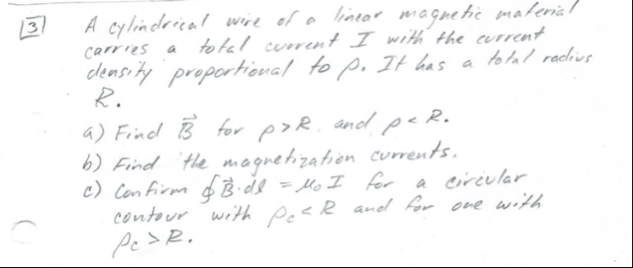 3 A cylindrical wire of a linear magnetic material
carries a total current I with the current
density proportional to ρ. It has a total radius
R.
a) Find B⃗ for ρ>R and ρ<R.
b) Find the magnetization currents.
c) Confirm ∮B⃗·dl = μ₀I for a circular
contour with ρc<R and for one with
ρc>R.